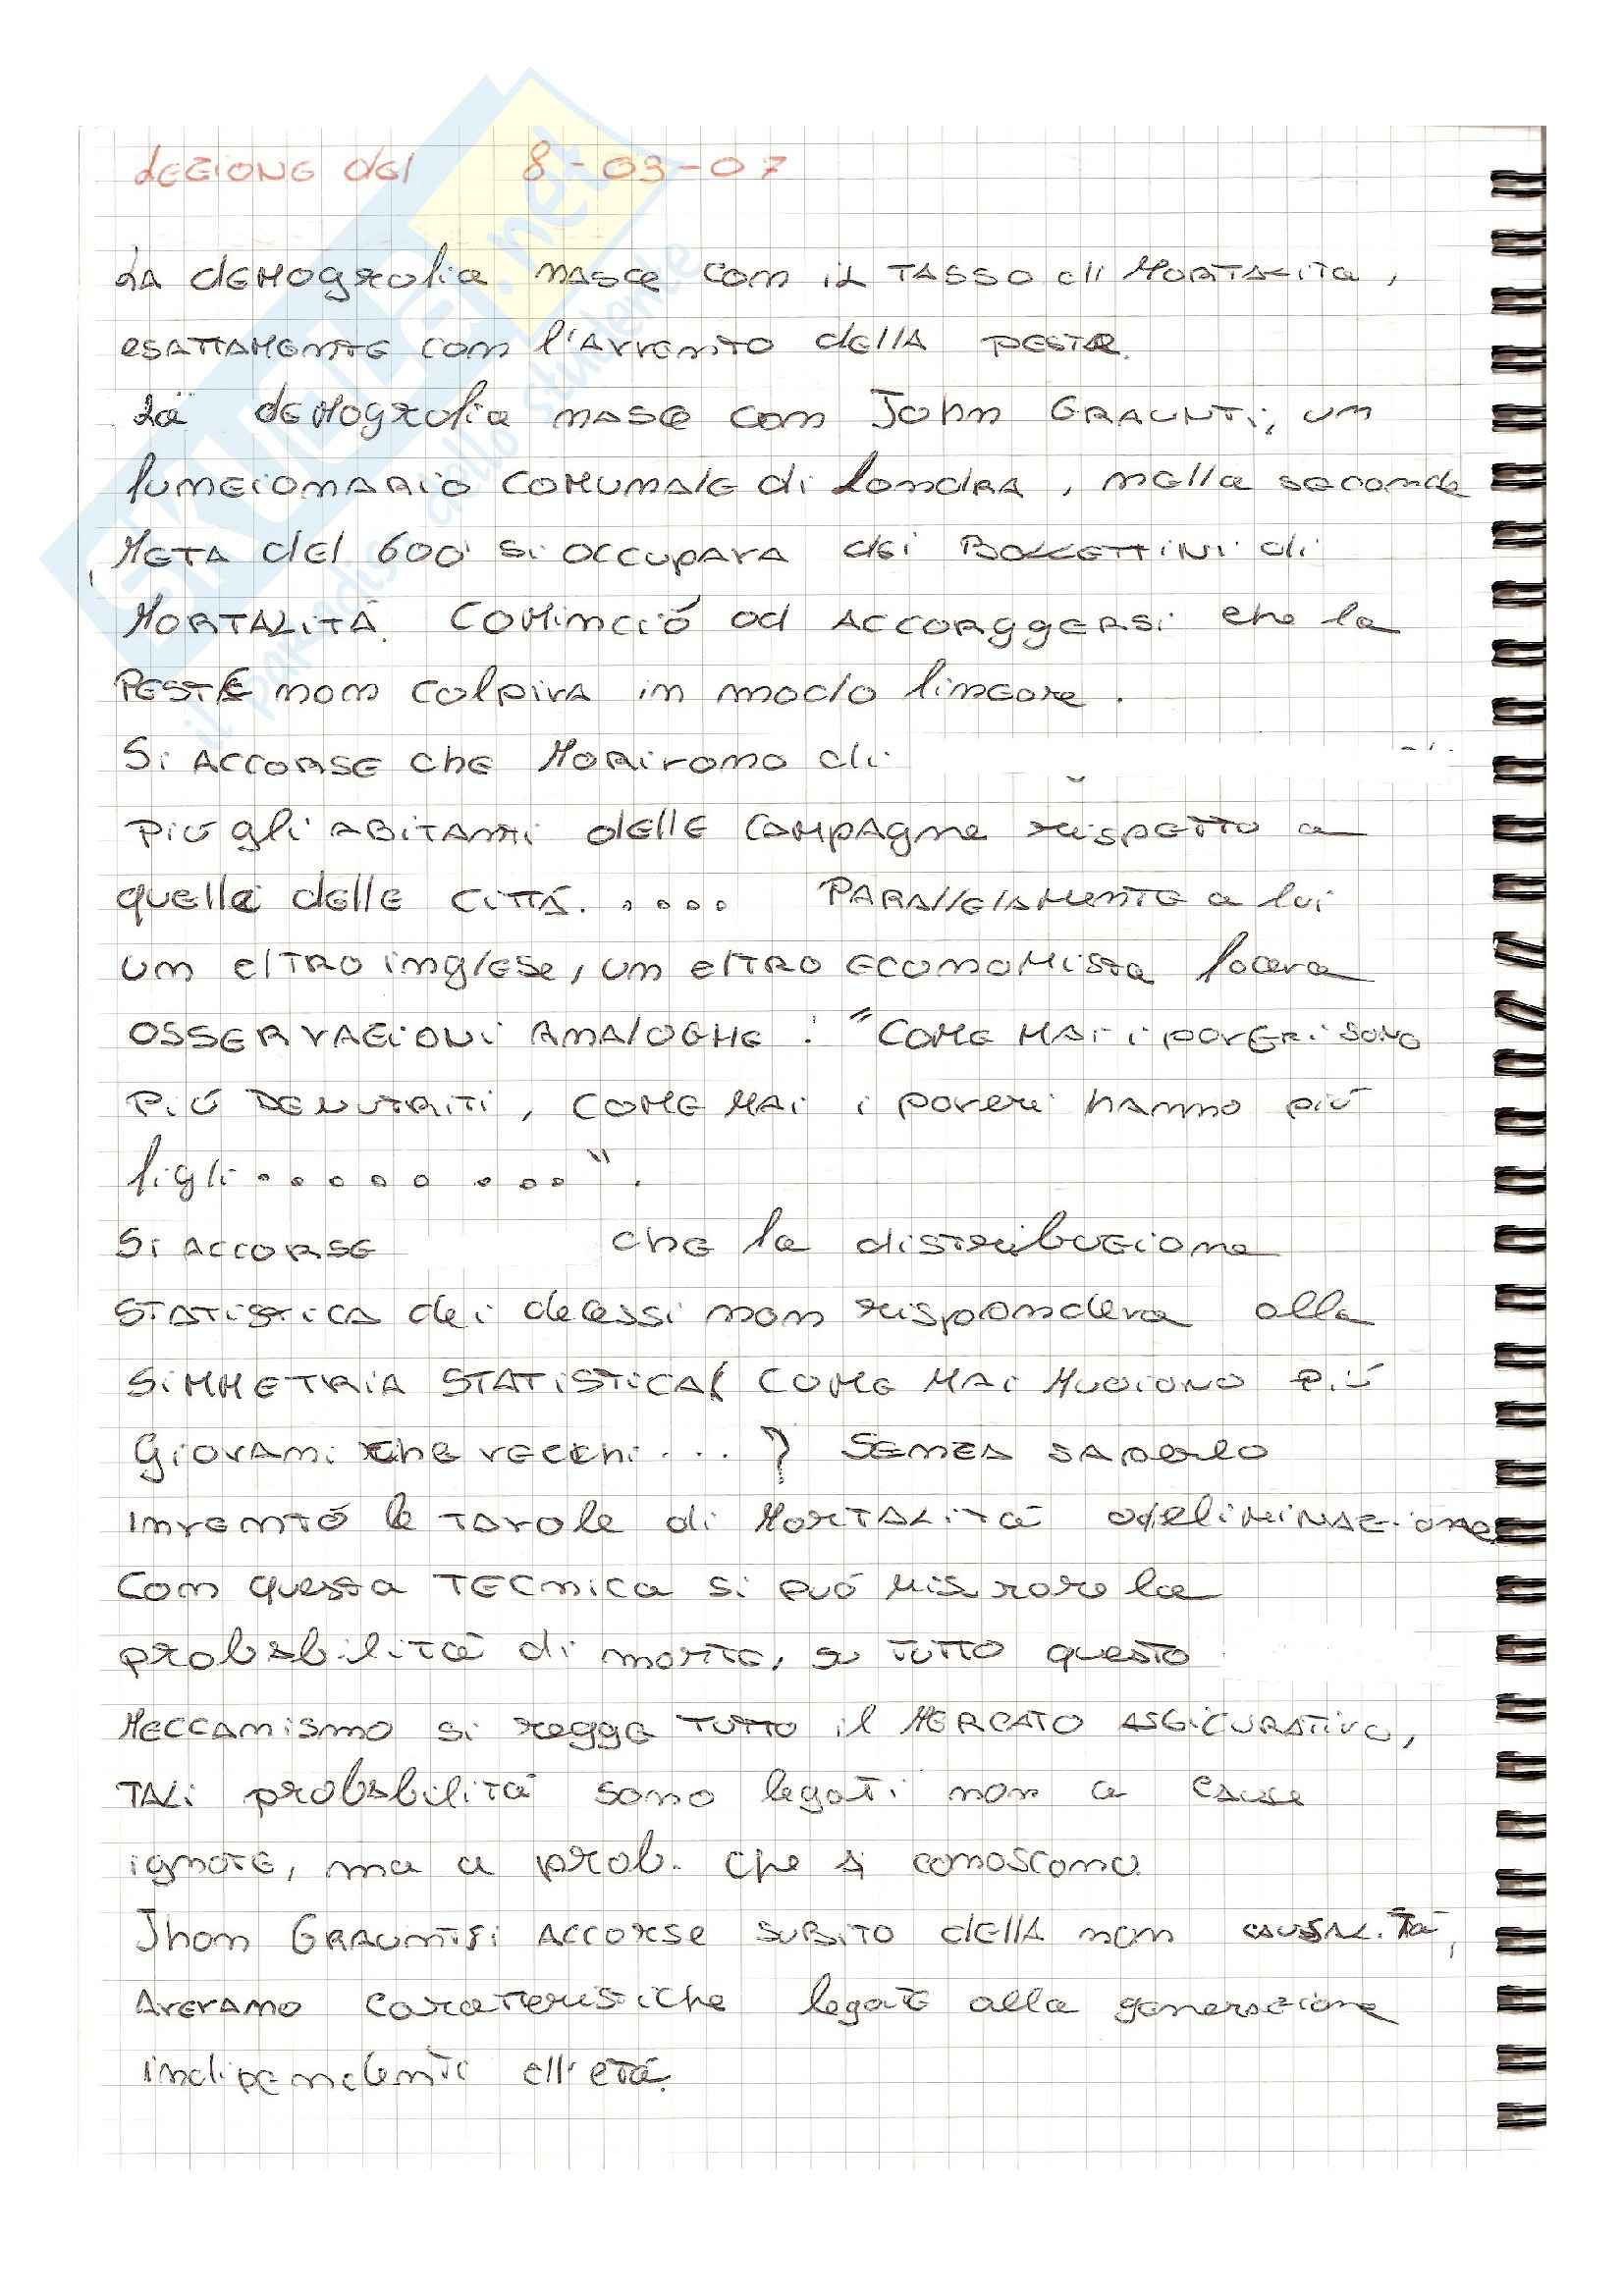 LEZIONE del 8-03-07
LA demografia nasce con il TASSO di MORTALITA,
esattamente con l'avvento della peste.
La demografia nasce con John GRAUNTi, un
funzionario comunale di Londra, nella seconda
METà del 600' si occupava dei Bollettini di
MORTALITà. Cominció ad accorggersi che la
PESTE non colpiva in modo lineare.
Si accorse che Morivono di
più gli abitanti delle campagne rispetto a
quelli delle città.....
PARALLELAMENTE a lui
un altro inglese, un altro economista faceva
OSSERVAZIONI ANALOGHE: "COME MAI i poveri sono
più DENUTRITI, COME MAI i poveri hanno più
figli.........".
Si accorse che la distribuzione
STATISTICA dei decessi non rispondeva alla
SIMMETRIA STATISTICA( COME MAI MUOIONO più
Giovani che vecchi....? Senza saperlo
inventó le tavole di MORTALITà o eliminazione
Con questa TECNICA si può misurare la
probabilità di morte, su TUTTO questo
MECCANISMO si regge TUTTO il MERCATO ASSICURATIVO,
TALI probabilità sono legati non a cause
ignote, ma a prob. che si conoscono.
Jhon GRAUNTi si accorse subito della non causalità,
Avevamo caratteristiche legate alla generazione
indipendenti all'età.
SKUOLA.net
il paradiso dello studente